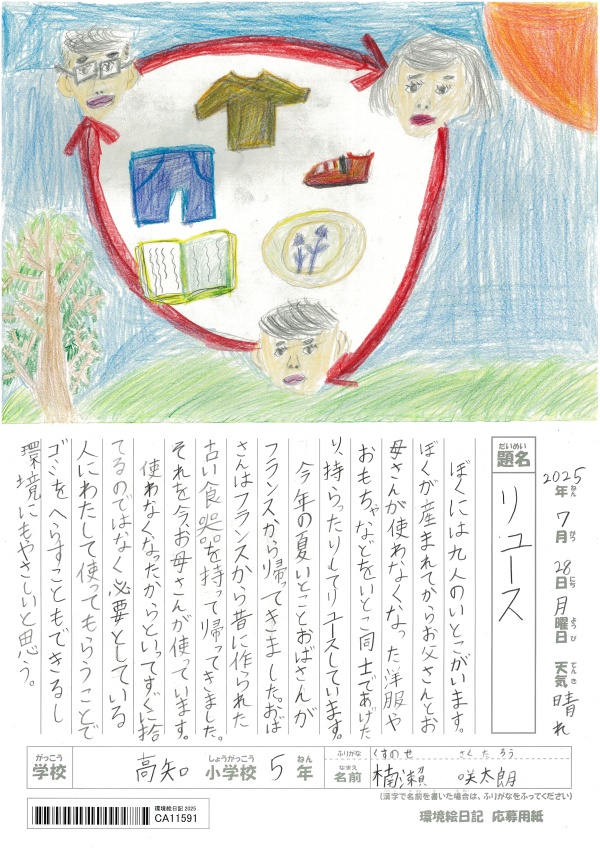 2025年7月28日月曜日 天気 晴れ
ねん がつ にち ようび てんき
だいめい
題名
リユース
ぼくには九人のいとこがいます。
ぼくが産まれてからお父さんとお
母さんが使わなくなった洋服や
おもちゃなどをいとこ同士であげた
り、持らったりしてリユースしています。
今年の夏いとことおばさんが
フランスから帰ってきました。おば
さんはフランスから昔に作られた
古い食器を持って帰ってきました。
それを今、お母さんが使っています。
使わなくなったからといってすぐに捨
てるのではなく必要としている
人にわたして使ってもらうことで
ゴミをへらすこともできるし
環境にもやさしいと思う。
がっこう しょうがっこう ねん
学校 高知 小学校 5年
ふりがな くすのせ さくたろう
なまえ
名前 楠瀬 咲太朗
(漢字で名前を書いた場合は、ふりがなをふってください)
環境絵日記 2025
CA11591
環境絵日記 応募用紙